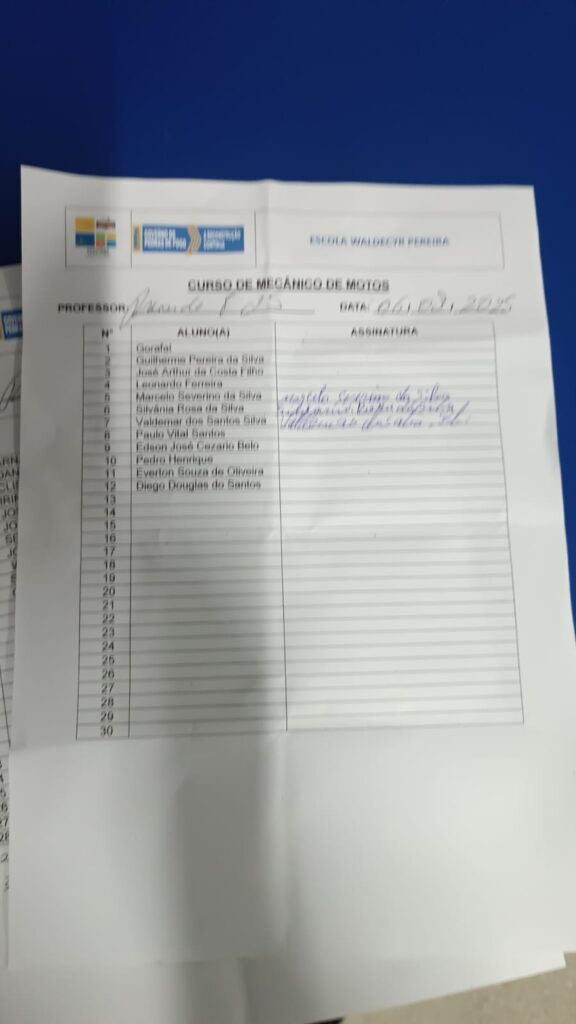 GOVERNO DE
PEDRAS DE FOGO
A RECONSTRUÇÃO
CONTINUA
ESCOLA WALDECYR PEREIRA
CURSO DE MECÂNICO DE MOTOS
PROFESSOR: DATA: 06, 03, 2025
Nº ALUNO(A) ASSINATURA
1 Gorafal
2 Guilherme Pereira da Silva
3 José Arthur da Costa Filho
4 Leonardo Ferreira
5 Marcelo Severino da Silva Marcelo Severino da Silva
6 Silvânia Rosa da Silva
7 Valdemar dos Santos Silva
8 Paulo Vital Santos
9 Edson José Cezario Belo
10 Pedro Henrique
11 Everton Souza de Oliveira
12 Diego Douglas do Santos
13
14
15
16
17
18
19
20
21
22
23
24
25
26
27
28
29
30